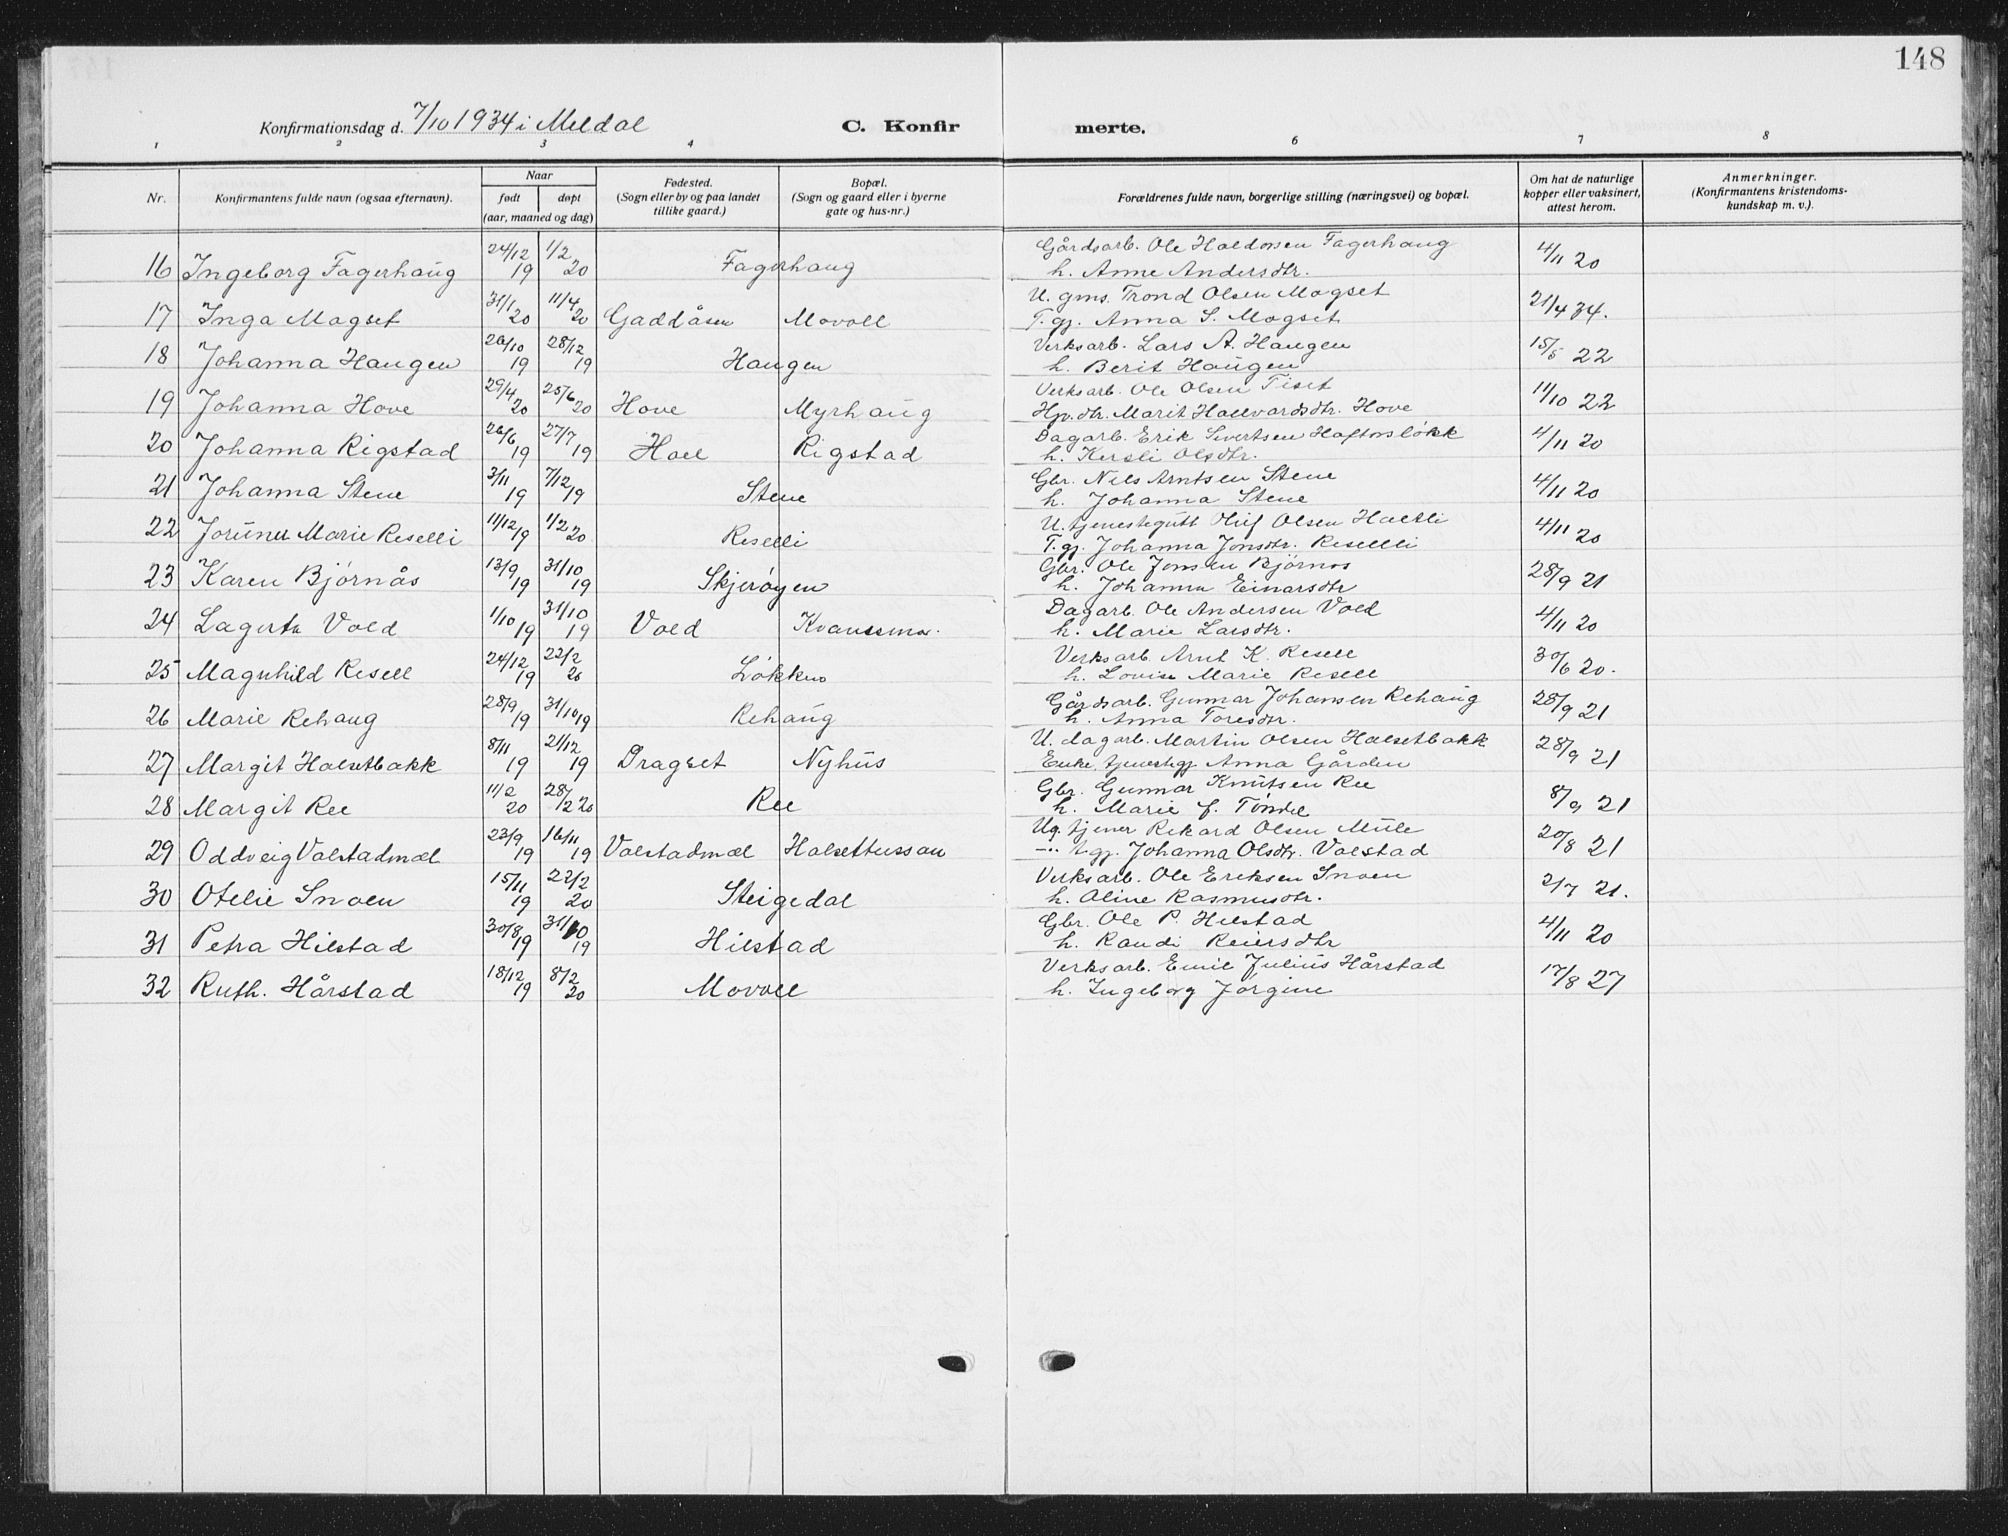 148
Konfirmationsdag d. 7/10 1934 i Meldal C. Konfir merte.
1 2 3 4 6 7 8
Nr. Konfirmantens fulde navn (ogsaa efternavn). Naar født døpt (aar, maaned og dag) Fødested. (Sogn eller by og paa landet tillike gaard.) Bopæl. (Sogn og gaard eller i byerne gate og hus-nr.) Forældrenes fulde navn, borgerlige stilling (næringsvei) og bopæl. Om hat de naturlige kopper eller vaksinert, attest herom. Anmerkninger. (Konfirmantens kristendoms- kundskap m. v.).
16 Ingeborg Fagerhaug 24/12 19 1/2 20 Fagerhaug Gårdsarb. Ole Haldorsen Fagerhaug 4/11 20
h. Anne Andersdtr.
17 Inga Mogset 31/1 20 11/4 20 Gaddåsen Movoll U. gms. Trond Olsen Mogset 21/4 34.
T. gj. Anna S. Mogset
18 Johanna Haugen 26/10 19 28/12 19 Haugen Verksarb. Lars A. Haugen 15/5 22
h. Berit Haugen
19 Johanna Hove 29/4 20 25/6 20 Hove Myrhaug Verksarb. Ole Olsen Tiset 11/10 22
Hpv. dtr. Marit Hallvardsdtr. Hove
20 Johanna Rigstad 26/6 19 27/7 19 Hoel Rigstad Dagarb. Erik Sivertsen Haftorsløkk 4/11 20
h. Kersti Olsdtr.
21 Johanna Stene 3/11 19 7/12 19 Stene Gbr. Nils Arntsen Stene 4/11 20
h. Johanna Stene
22 Jorunn Marie Reselli 11/12 19 1/2 20 Reselli U. tjenestegutt Oluf Olsen Haltli 4/11 20
T. gj. Johanna Jonsdtr. Reselli
23 Karen Bjørnås 13/9 19 31/10 19 Skjerøyen Gbr. Ole Jonsen Bjørnos 28/9 21
h. Johanna Einarsdtr
24 Lagerta Vold 1/10 19 31/10 19 Vold Kvamsmo. Dagarb. Ole Andersen Vold 4/11 20
h. Marie Larsdtr.
25 Magnhild Resell 24/12 19 22/2 20 Løkken Verksarb. Arnt K. Resell 30/6 20.
h. Lovise Marie Resell
26 Marie Rehaug 28/9 19 31/10 19 Rehaug Gårdsarb. Gunnar Johansen Rehaug 28/9 21
h. Anna Toresdtr.
27 Margit Halsetbakk 8/11 19 21/12 19 Dragset Nyhus U. dagarb. Martin Olsen Halsetbakk 28/9 21
Enke, tjenestegj. Anna Gården
28 Margit Ree 11/2 20 28/2 20 Ree Gbr. Gunnar Knutsen Ree 8/9 21
h. Marie f. Tøndel
29 Oddveig Volstadmæl 23/9 19 16/11 19 Volstadmæl Halsettussau Ug. tjener Rikard Olsen Mule 20/8 21
–"– t. gj. Johanna Olsdtr. Volstad
30 Otelie Snoen 15/11 19 22/2 20 Steigedal Verksarb. Ole Eriksen Snoen 2/7 21.
h. Oline Rasmusdtr.
31 Petra Hilstad 30/8 19 31/10 19 Hilstad Gbr. Ole P. Hilstad 4/11 20
h. Randi Reiersdtr
32 Ruth. Hårstad 18/12 19 8/2 20 Movoll Verksarb. Emil Julius Hårstad 17/8 27
h. Ingeborg Jørgine